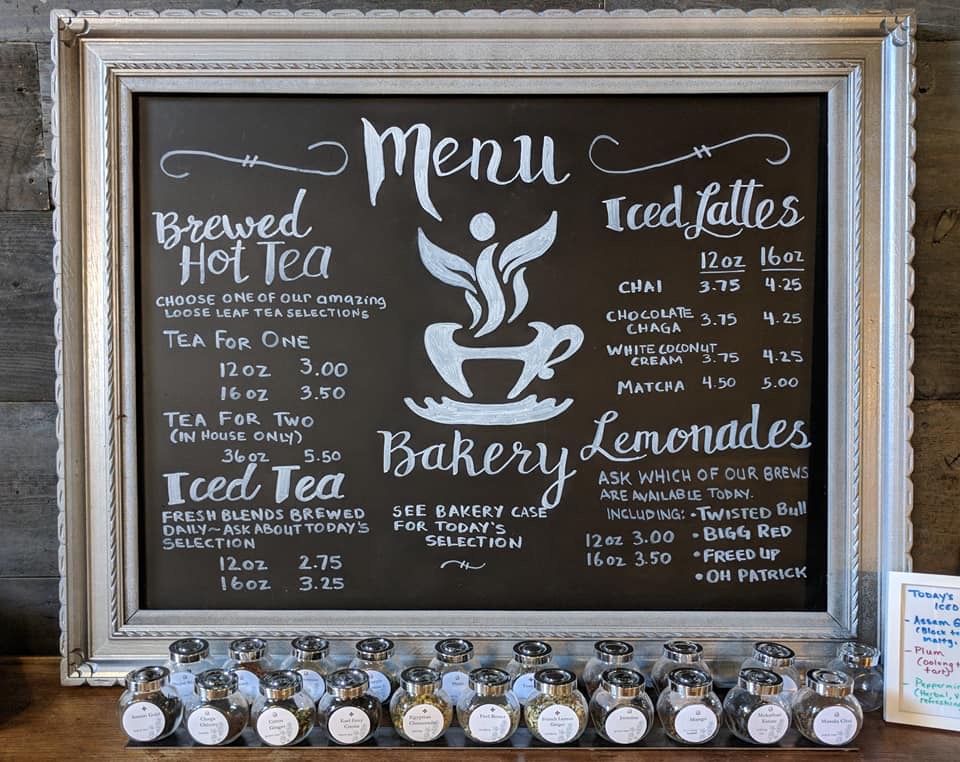 Menu
Brewed
Hot Tea
CHOOSE ONE OF OUR amazing
LOOSE LEAF TEA SELECTIONS
TEA FOR ONE
12oz 3.00
16oz 3.50
TEA FOR TWO
(IN HOUSE ONLY)
36oz 5.50
Iced Tea
FRESH BLENDS BREWED
DAILY~ASK ABOUT TODAY'S
SELECTION
12oz 2.75
16oz 3.25
Bakery
SEE BAKERY CASE
FOR TODAY'S
SELECTION
Iced Lattes
12oz 16oz
CHAI 3.75 4.25
CHOCOLATE
CHAGA 3.75 4.25
WHITE COCONUT
CREAM 3.75 4.25
MATCHA 4.50 5.00
Lemonades
ASK WHICH OF OUR BREWS
ARE AVAILABLE TODAY.
INCLUDING: • TWISTED Bull
12oz 3.00 • BIGG RED
16oz 3.50 • FREED UP
• OH PATRICK
TODAY'S
ICED
- Assam
(Black
malty,
- Plum
(oolong
tart)
(Herbal,
refreshing
Chaga
Citrus
Ginger
Earl Grey
Egyptian
Chamomile
French Lemon
Ginger
Jasmine
Mango
Masala Chai